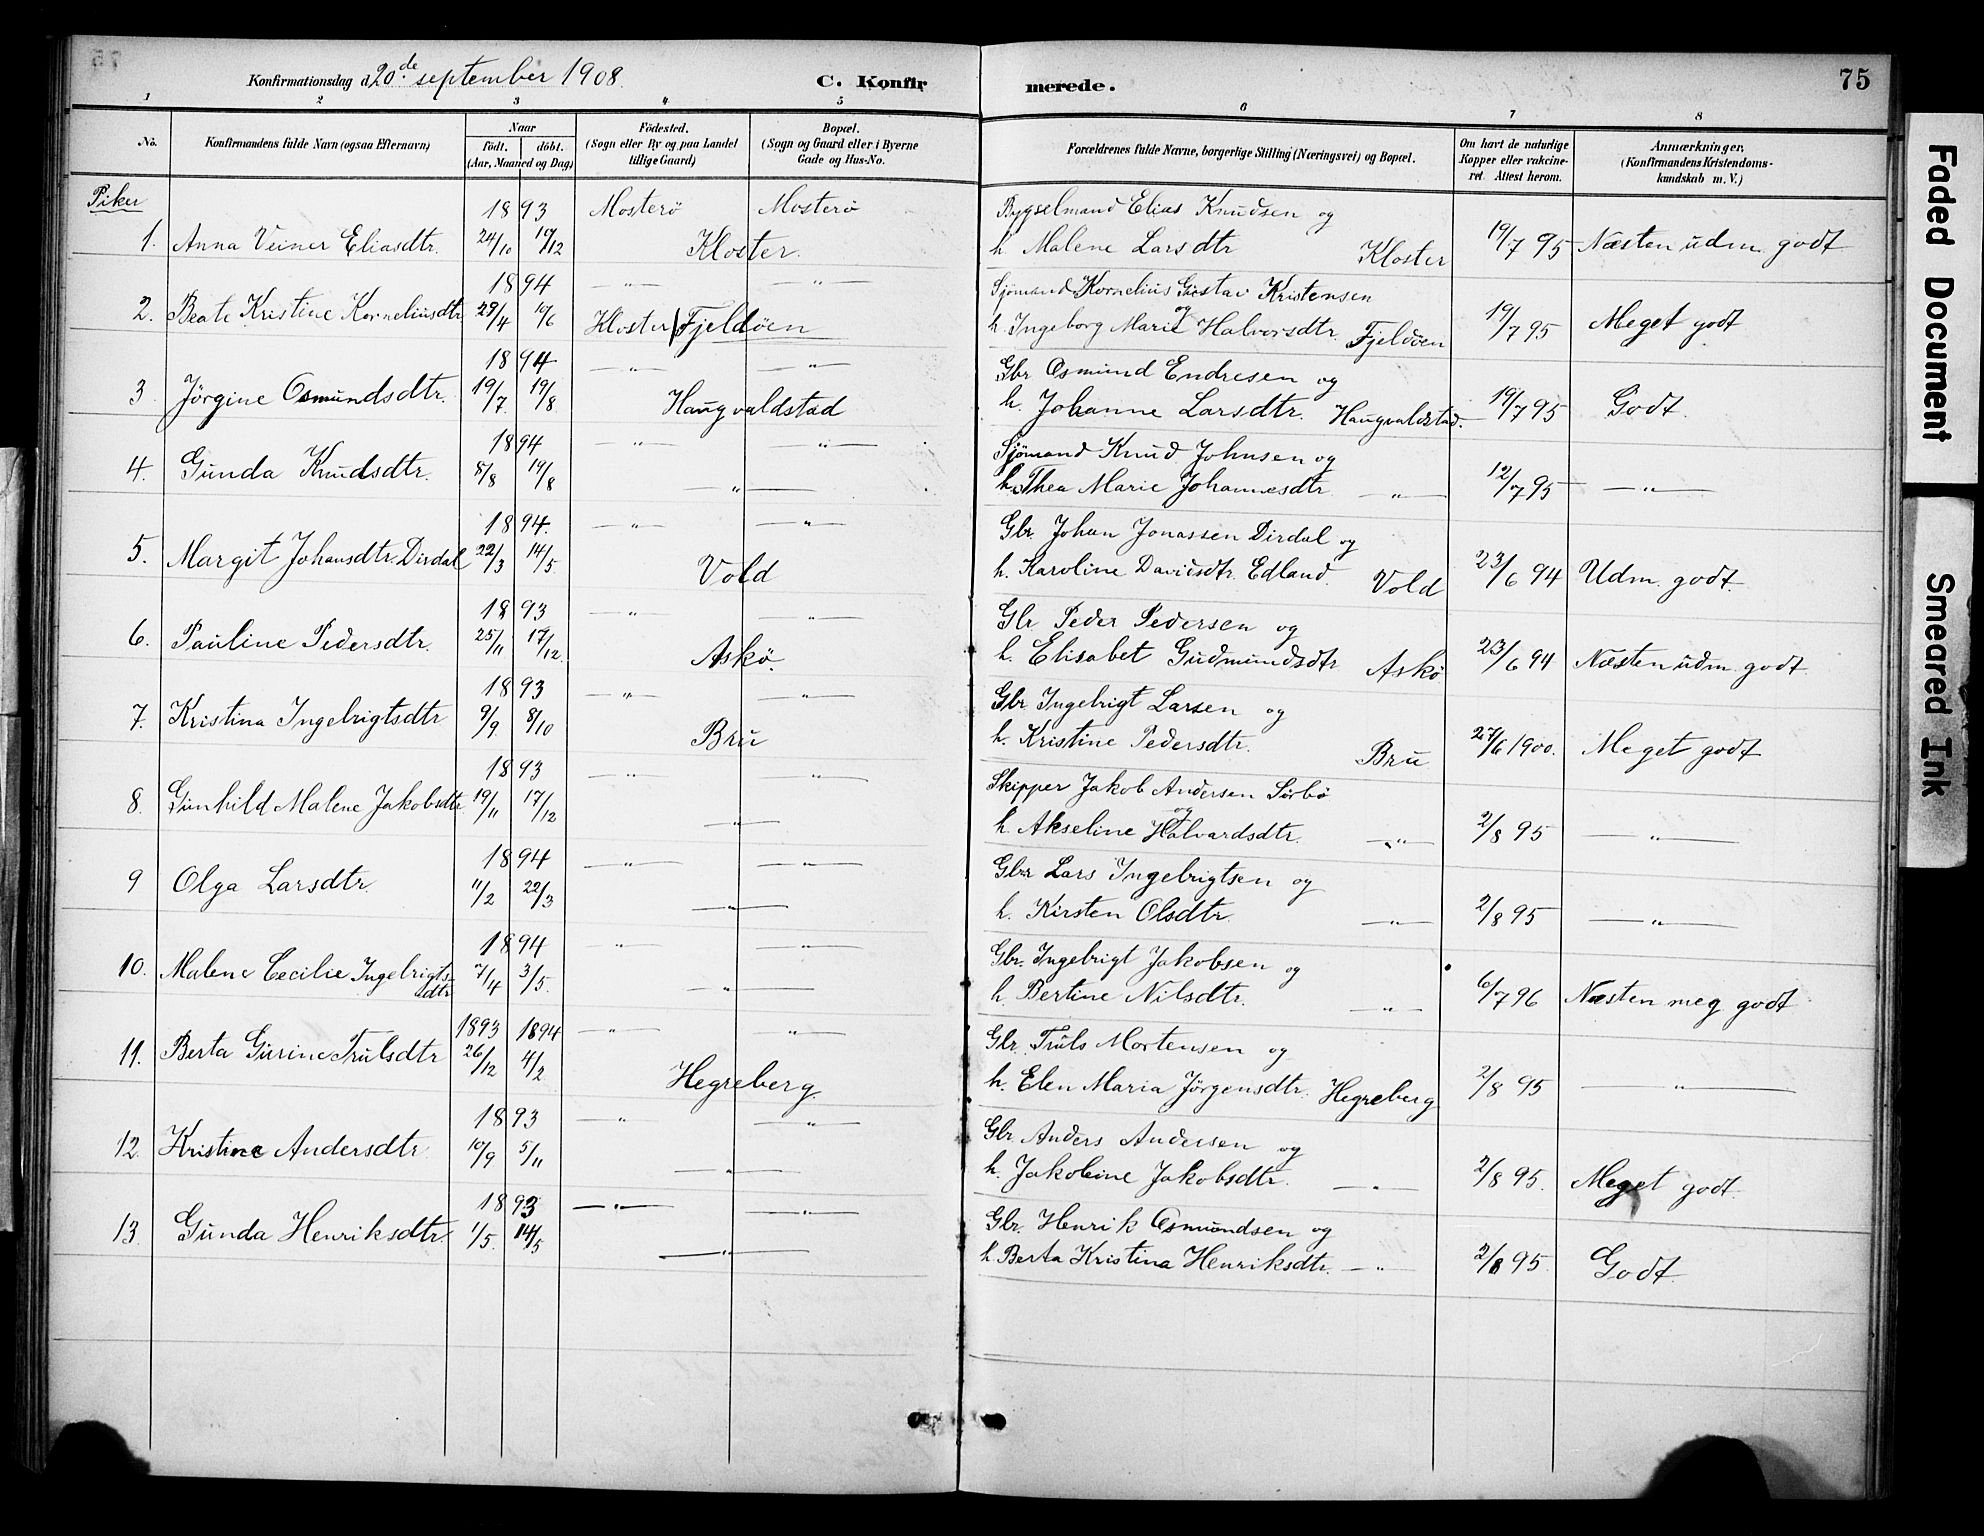 Konfirmationsdag d. 20de september 1908. C. Konfirmerede. 75
1 2 3 4 5 6 7 8
No. Konfirmandens fulde Navn (ogsaa Efternavn) Naar født. døbt. (Aar, Maaned og Dag) Fødested. (Sogn eller By og paa Landet tillige Gaard) Bopæl. (Sogn og Gaard eller i Byerne Gade og Hus-No.) Forældrenes fulde Navne, borgerlige Stilling (Næringsvei) og Bopæl. Om havt de naturlige Kopper eller vakcineret. Attest herom. Anmærkninger. (Konfirmandens Kristendomskundskab m. V.)
Piker
1893 Mosterö Mosterö Bygselmand Elias Knudsen og
1. Anna Veiner Eliasdtr. 24/10 10/12 Kloster. h. Malene Larsdtr Kloster 19/7 95 Næsten udm. godt
1894 " " Sjömand Kornelius Gustav Kristensen og
2. Beate Kristine Korneliusdtr 29/4 10/6 Kloster Fjeldöen h. Ingeborg Marie Halvorsdtr. Fjeldöen 19/7 95 Meget godt
1894 " " Gbr Osmund Endresen og
3 Jörgine Osmundsdtr. 19/7. 19/8 Haugvaldstad h. Johanne Larsdtr. Haugvaldstad. 19/7 95 Godt.
1894 " " Sjömand Knud Johnsen og
4. Gunda Knudsdtr. 8/8 19/8 " h. Thea Marie Johannesdtr " 12/7 95 "
1894. " " Gbr. Johan Jonassen Dirdal og
5. Margit Johansdtr. Dirdal 22/3 14/5 Vold h. Karoline Davidsdtr. Edland. Vold 23/6 94 Udm. godt.
1893 " " Gbr Peder Pedersen og
6. Pauline Pedersdtr. 25/11 17/12. Askö. h. Elisabet Gudmundsdtr Askö 23/6 94 Næsten udm. godt
1893 " " Gbr Ingebrigt Larsen og
7. Kristina Ingebrigtsdtr 9/9. 8/10 Bru h. Kristine Pedersdtr. Bru 27/6 1900. Meget godt
1893 " " Skipper Jakob Andersen Sörbö og
8. Gunhild Malene Jakobsdtr 19/11 17/12 " h. Akseline Halvardsdtr. " 2/8 95 "
1894 " " Gbr Lars Ingebrigtsen og
9 Olga Larsdtr. 11/2 22/3 " h. Kirsten Olsdtr. " 2/8 95 "
1894 " " Gbr. Ingebrigt Jakobsen og
10. Malene Cecilie Ingebrigtsdtr 7/4 3/5. " h. Bertine Nilsdtr. " 6/7 96 Næsten meg. godt
1893 1894 " " Gbr. Truls Mortensen og
11. Berta Gurine Trulsdtr 26/12 4/2 Hegreberg. h. Elen Maria Jörgensdtr. Hegreberg 2/8 95 "
1893 " " Gbr. Anders Andersen og
12. Kristine Andersdtr. 10/9 5/11 " h. Jakobine Jakobsdtr. " 2/8 95. Meget godt.
1893 " " Gbr. Henrik Osmundsen og
13. Gunda Henriksdtr. 1/5. 14/5 " h. Berta Kristina Henriksdtr. " 2/8 95. Godt
Faded Document
Smeared Ink